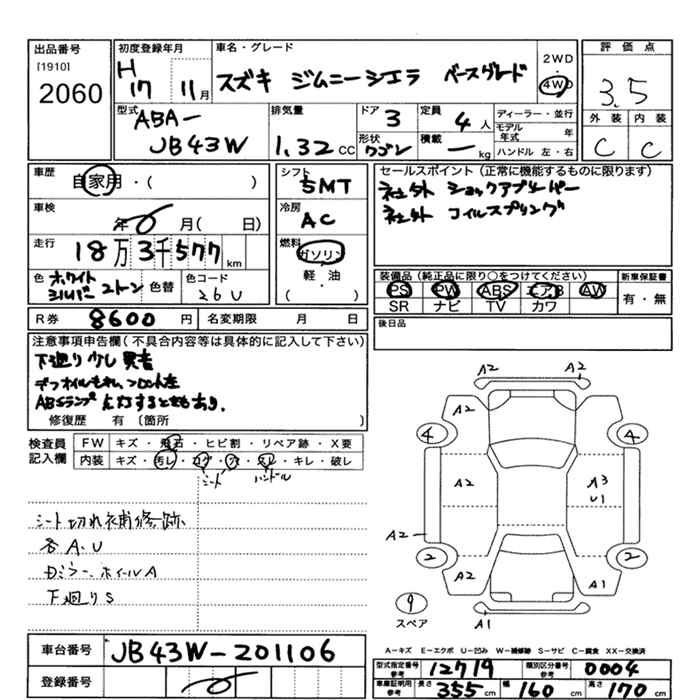 出品番号
[1910]
2060
初度登録年月
H 17 11月
車名・グレード
スズキ ジムニーシエラ ベースグレード
2WD
・
4WD
評価点
3.5
外装 内装
C C
型式
ABA-
JB43W
排気量
1,32 CC
ドア 3
形状 ワゴン
定員 4 人
積載 ー kg
ディーラー・並行
モデル年式 年
ハンドル 左・右
車歴
自家用・( )
車検
年 月( 日)
走行
18万3千577 km
色 ホワイト シルバー 2トン
色替
色コード
26U
シフト
5MT
冷房
AC
燃料
ガソリン
軽・油
( )
セールスポイント(正常に機能するものに限ります)
社外 ショックアブソーバー
社外 コイルスプリング
装備品(純正品に限り○をつけてください)
PS PW ABS エアB AW
SR ナビ TV カワ
新車保証書
有・無
後日品
R券 8600 円 名変期限 月 日
注意事項申告欄(不具合内容等は具体的に記入して下さい)
下廻り少し異音
デフオイルもれ、フロント左
ABSランプ点灯するときもあり。
修復歴 有 〔箇所 〕
検査員記入欄
FW キズ・飛石・ヒビ割・リペア跡・X要
内装 キズ・汚レ・コゲ・穴・スレ・キレ・破レ
シート ハンドル
シート切れ補修跡
各A.U
Dミラー、ホイルA
下廻りS
A2 A2
4 4
A2 A3
U1
A2
2 2
A2 A1
9
スペア
A1
A-キズ E-エクボ U-凹み W-補修跡 S-サビ C-腐食 XX-交換済
車台番号 JB43W-201106
登録番号
型式指定番号 参考 12719 類別区分番号 参考 0004
車庫証明用 参考 長さ 355 cm 幅 160 cm 高さ 170 cm